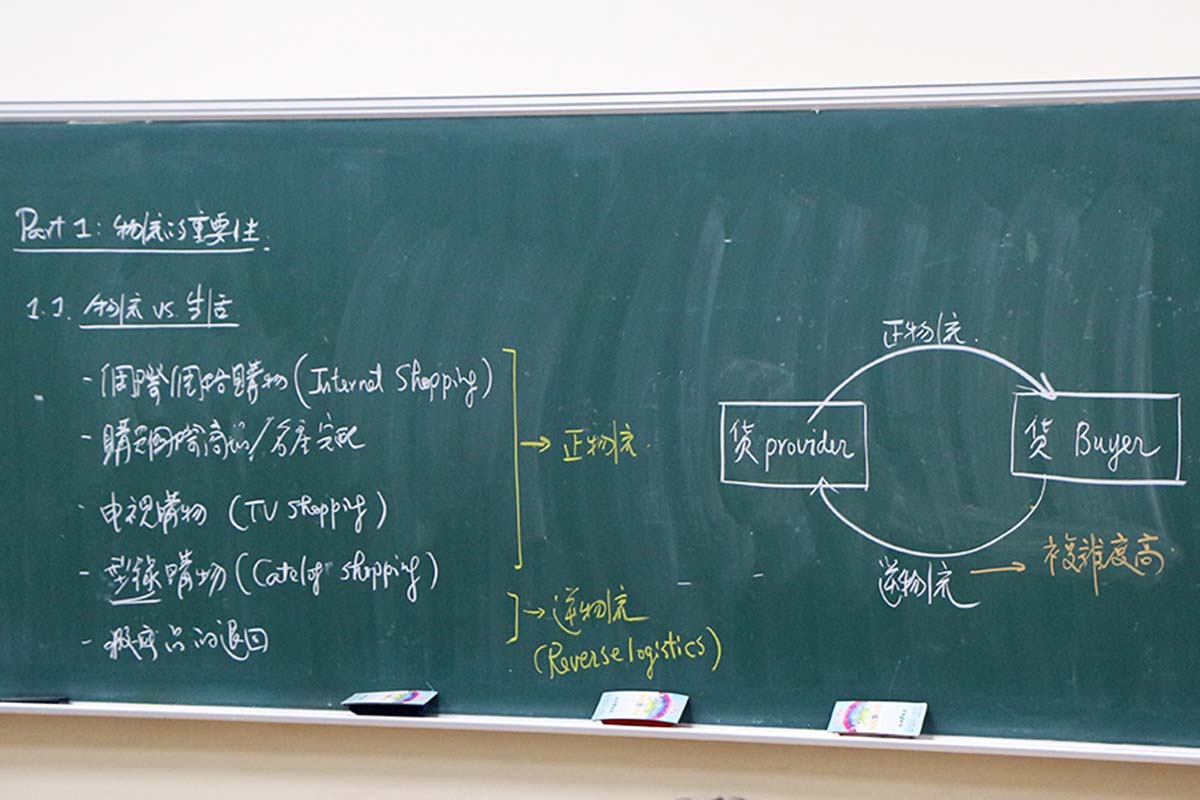 Part 1: 物流的重要性
1.1. 物流 vs. 生活
- 國際網路購物 (Internet Shopping)
- 購買國際商品/名產宅配
- 电視購物 (TV Shopping)
- 型錄購物 (Catelog shopping)
- 瑕疵品的退回
→ 正物流
→ 逆物流
(Reverse logistics)
正物流
货 provider
货 Buyer
逆物流 → 複雜度高